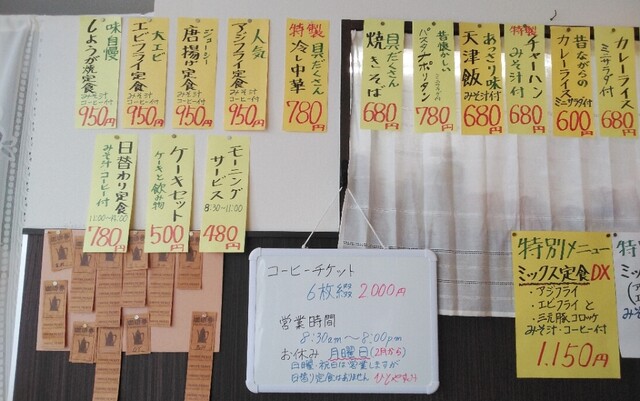 味自慢
しょうが焼定食
みそ汁
コーヒー付
950円
大エビ
エビフライ定食
みそ汁
コーヒー付
950円
ジューシー
唐揚げ定食
みそ汁
コーヒー付
950円
人気
アジフライ定食
みそ汁
コーヒー付
950円
特製
具だくさん
冷し中華
780円
具だくさん
焼きそば
680円
昔懐かしい
パスタナポリタン
780円
あっさり味
天津飯
みそ汁付
680円
特製
チャーハン
みそ汁付
680円
昔ながらの
カレーライス
ミニサラダ付
600円
カレーライス
ミニサラダ付
680円
日替わり定食
みそ汁コーヒー付
780円
ケーキセット
ケーキと飲み物
500円
モーニング
サービス
8:30~11:00
480円
コーヒーチケット
6枚綴 2000円
営業時間
8:30am~8:00pm
お休み 月曜日(2月から)
日曜・祝日は営業しますが
日替り定食はありません
特別メニュー
ミックス定食DX
・アジフライ
・エビフライと
・三元豚コロッケ
みそ汁・コーヒー付
1.150円